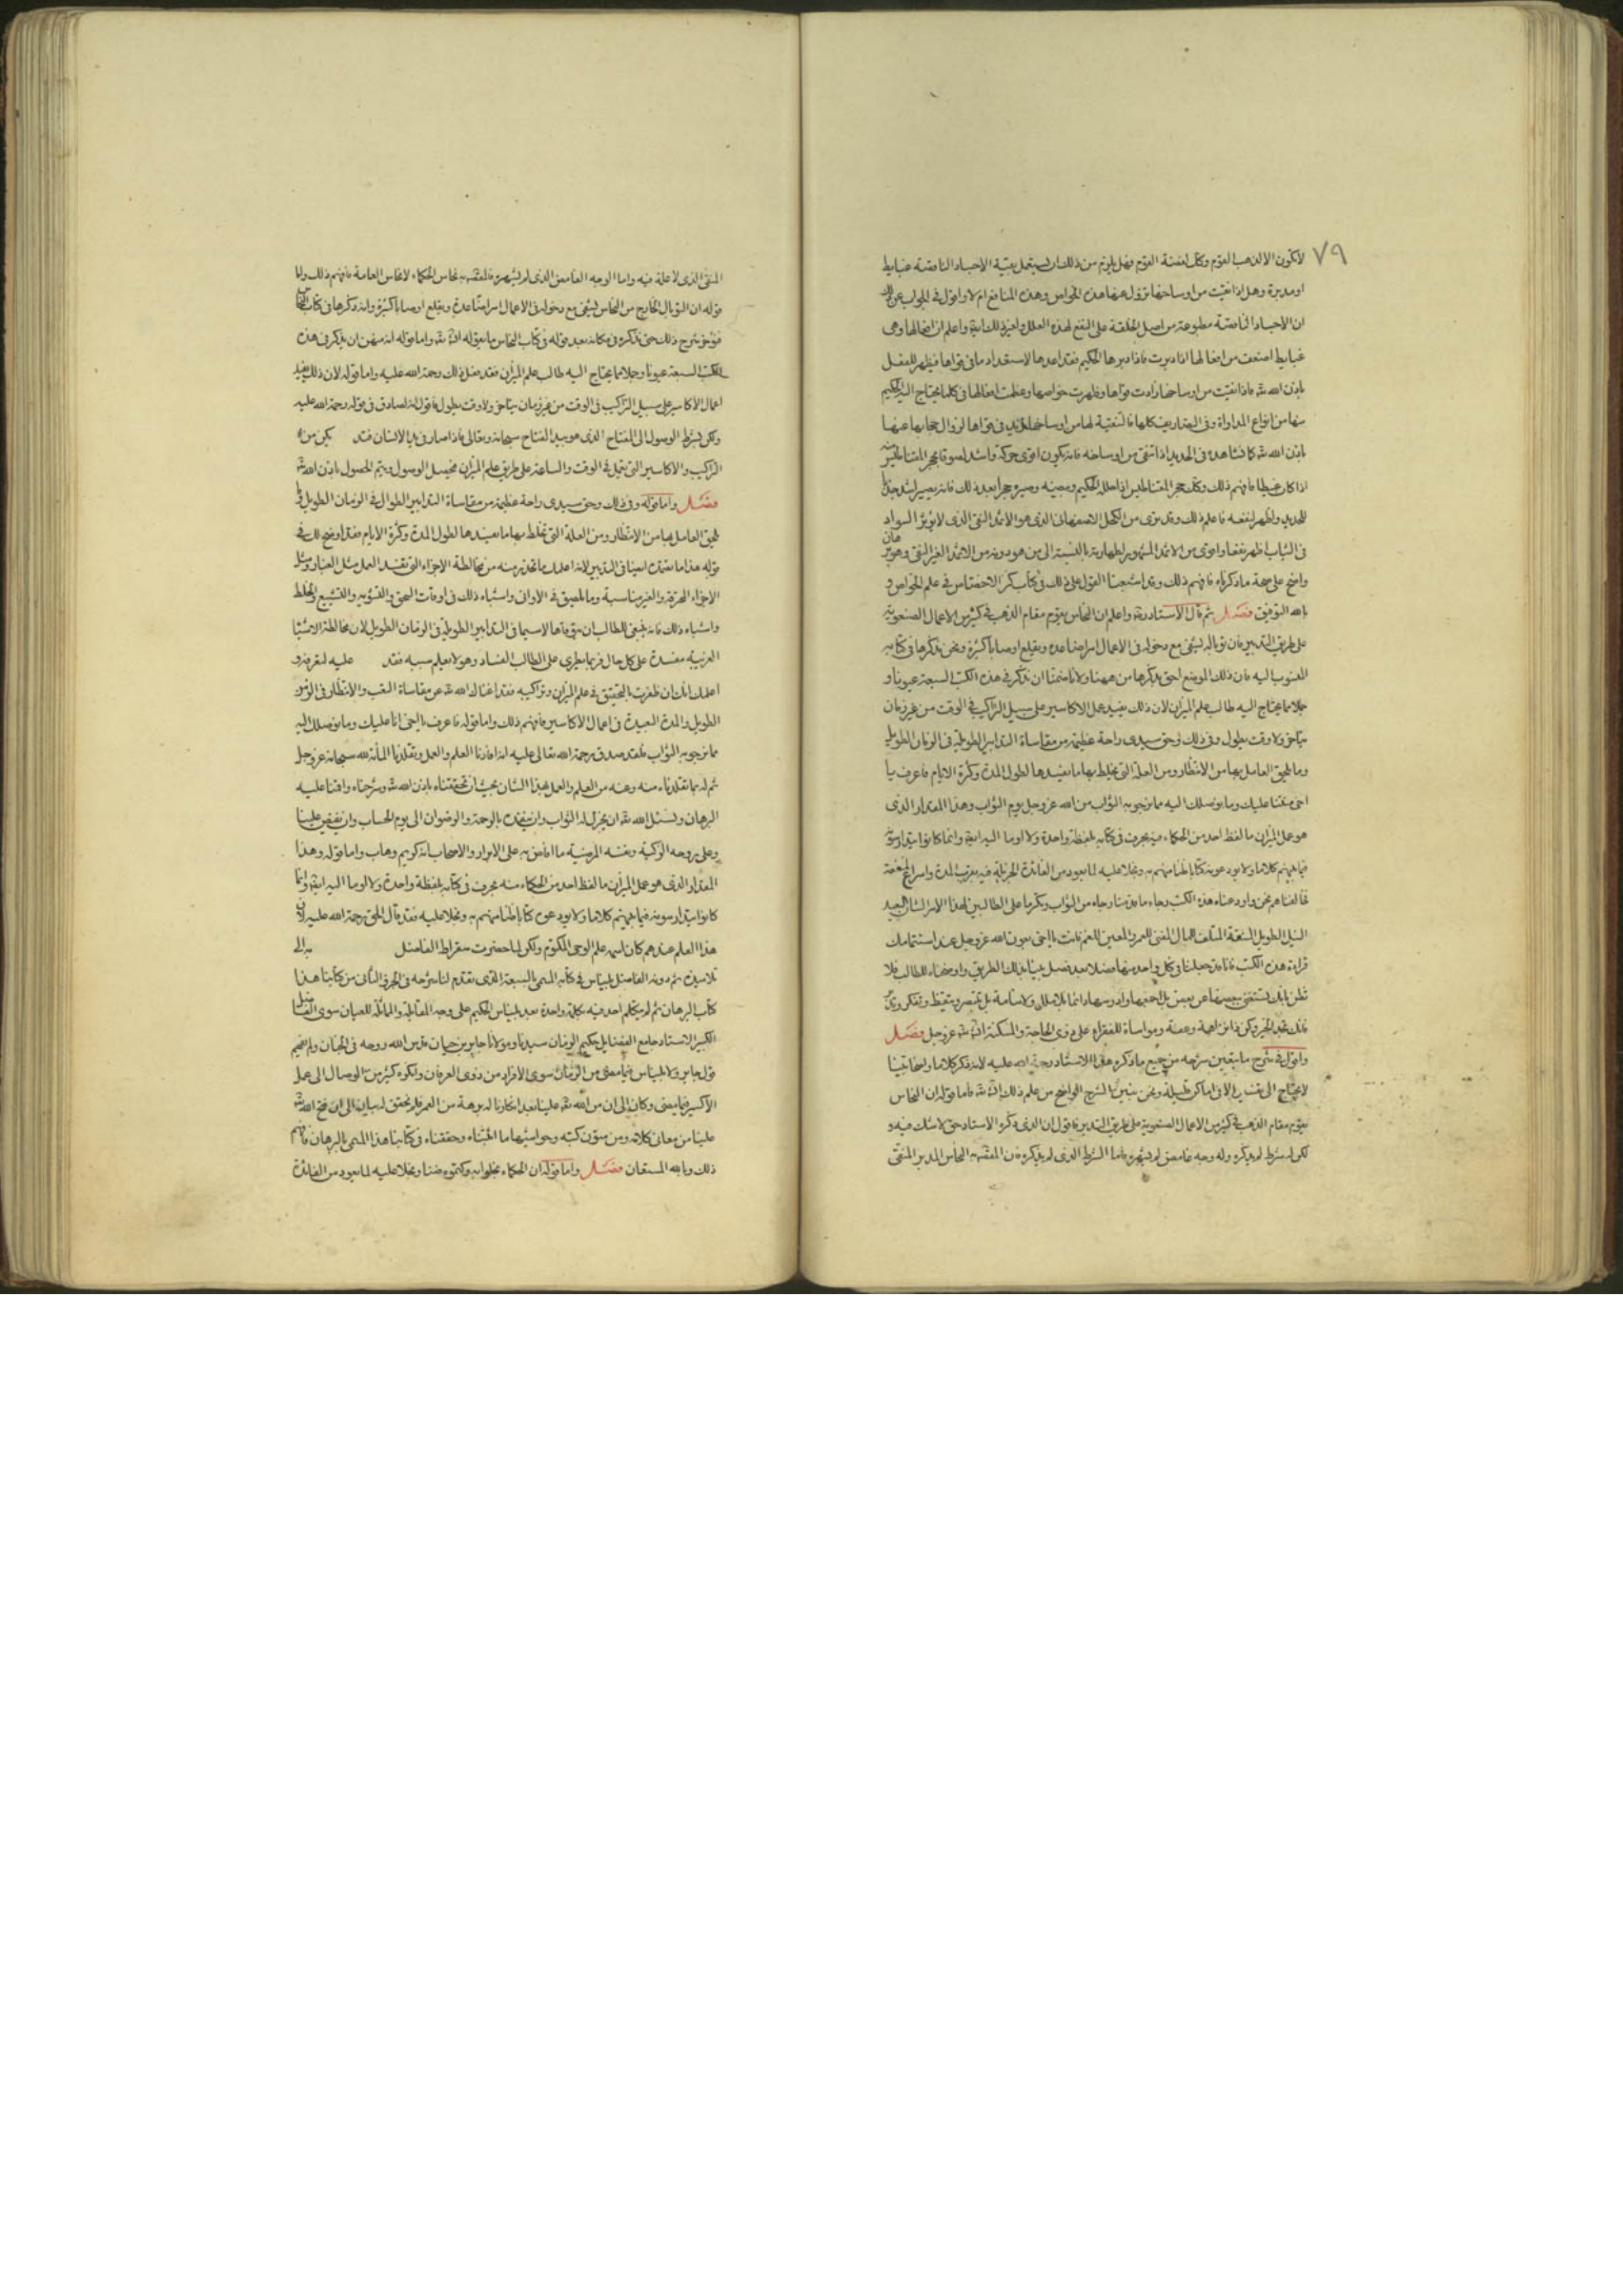 ٧٩
لا تكون الا الذهب القوم وكل لفضة القوم فهل يلزم من ذلك ان يستعمل بقية الاجساد الناقصة عبايط
او مدبرة وهل اذا نقيت من اوساخها تزول عنها هذه الخواص وهذه المنافع ام لا واقول في الجواب عن ذلك
ان الاجساد الناقصة مطبوعة من اصل الخلقة على النفع لهذه العلل ولغير ذلك ايضا واعلم ان افعالها وهي
عبايط اضعف من افعالها اذا دبرت فاذا دبرها الحكيم فقد اعدها لاستعداد ما في قواها فيظهر للفعل
باذن الله تعالى فاذا نقيت من اوساخها زادت قواها وظهرت خواصها وعظمت افعالها في كلما يحتاج اليه الحكيم
منها من انواع المداواة وفي المضار كلها فالتنقية لها من اوساخها تزيد في قواها لزوال حجابها عنها
باذن الله تعالى كما نشاهده في الحديد اذا نقي من اوساخه فانه يكون اقوى حركة واشد لصوقا بحجر المغناطيس منه
اذا كان عبيطا فافهم ذلك وكل حجر المغناطيس اذا حلله الحكيم وصيره حجرا بعد ذلك فانه يصير اشد جذبا
للحديد واظهر لنفعه فاعلم ذلك وقد نرى من الكحل الاصفهاني الذي هو الاثمد النقي الذي لا يؤثر السواد
في الثياب اظهر نفعا واقوى من الاثمد المشهور اظهاريته بالنسبة الى من هو دونه من الاثمد الغير النقي وهو برهان
واضح على صحة ما ذكرناه فافهم ذلك وقد اشبعنا القول على ذلك في كتاب كنز الاختصاص في علم الخواص و
بالله التوفيق فصل ثم قال الاستاد واعلم ان النحاس يقوم مقام الذهب في كثير من الاعمال الصنعوية
على طريق التدبير فان توباله ليشفي مع دخوله في الاعمال امراضا عدة ويقلع اوصابا كثيرة ونحن نذكرها في كتابه
المنسوب اليه فان ذلك الموضع احق بذكرها من ههنا ولانا ضمنا ان نذكر في هذه الكتب السبعة عيونا و
جملا مما يحتاج اليه طالب علم الميزان لان ذلك يفيد عمل الاكاسير على سبيل التراكيب في الوقت من غير زمان
يتاخر ولا وقت يطول وفي ذلك وحق سيدي راحة عظيمة من مقاساة التدابير الطويلة في الزمان الطويل
وما يلحق العامل بها من الانتظار ومن العلة التي تخلط بها ما يفسدها لطول المدة وكثرة الايام فاعرف يا
اخي حقنا عليك وما نوصلك اليه مما نرجو به الثواب من الله عز وجل يوم الثواب وهذا المقدار الذي
هو عمل الميزان ما لفظ احد من الحكماء فيه بحرف في كتابه بلفظة واحدة ولا اوما اليه ايضا وانما كانوا يتدارسونه
فيما بينهم كلاما ولا يودعونه كتابا ظنا منهم به وبخلا عليه لما يعود من الفائدة الجزيلة فيه بقرب المدة واسراع المنفعة
فخالفناهم نحن واودعناه هذه الكتب رجاء ما قدمنا رجاءه من الثواب وتكرما على الطالبين لهذا الامر الشان البعيد
النيل الطويل الشقة المتلف للمال المفني للعمر والمعين للغم فانت يا اخي بعون الله عز وجل عند استتمامك
قراءة هذه الكتب فانا قد جعلنا في كل واحد منها فصلا بعد فصل بينا بذلك الطريق واوضحناه للطالب فلا
تظن بانك تستغني ببعضها عن بعض بل اجمعها وادرسها دائما بلا ملال ولا سآمة بل تبصر وتيقظ وتفكر وتدبر
فانك تجد الخير وكن ذا نزاهمة وعفة ومواساة للفقراء على ذوي الحاجة والمسكنة ان شاء الله عز وجل فصل
واقول في شرح ما يتعين شرحه من جميع ما ذكره هذا الاستاد رحمة الله عليه لانه ذكر كلاما واضحا بينا
لا يحتاج الى تفسير الا في اماكن قليلة ونحن نبين الشرح الواضح من علم ذلك ان شاء الله تعالى فاما قوله ان النحاس
يقوم مقام الذهب في كثير من الاعمال الصنعوية على طريق التدبير فاقول ان الذي ذكره الاستاد حق لا شك فيه و
لكن له شرط لم يذكره وله وجه غامض لم يشهره فاما الشرط الذي لم يذكره فان المقصود به النحاس المدبر المنقى
المنقى الذي لا علة فيه واما الوجه الغامض الذي لم يشهره فالمقصود به نحاس الحكماء لا نحاس العامة فافهم ذلك واما
قوله ان التوبال الخارج من النحاس ليشفي مع دخوله في الاعمال امراضا عدة ويقلع اوصابا كثيرة وانه ذكرها في كتاب النحاس
فنؤخر شرح ذلك حتى نذكره في مكانه بعد قوله في كتاب النحاس ما يقوله ان شاء الله تعالى واما قوله انه ضمن ان يذكر في هذه
الكتب السبعة عيونا وجملا مما يحتاج اليه طالب علم الميزان فقد فعل ذلك رحمة الله عليه واما قوله لان ذلك يفيد
اعمال الاكاسير على سبيل التراكيب في الوقت من غير زمان يتاخر ولا وقت يطول فاقول انه لصادق في قوله رحمة الله عليه
ولكن بشرط الوصول الى المفتاح الذي هو بيد الفتاح سبحانه وتعالى فاذا صار في يد الانسان فقد يمكن من
التراكيب والاكاسير التي تعمل في الوقت والساعة على طريق علم الميزان فيحصل الوصول ويتم الحصول باذن الله تعالى
فصل واما قوله وفي ذلك وحق سيدي راحة عظيمة من مقاساة التدابير الطوال في الزمان الطويل وما
يلحق العامل بها من الانتظار ومن العلة التي تخلط بها ما يفسدها لطول المدة وكثرة الايام فقد اوضح لك في
قوله هذا ما يعتمده ايضا في التدبير لانه اعلمك ما تحذر منه من مخالطة الاجزاء التي تفسد العمل مثل الغبار ومثل
الاجزاء المحرقة والغير مناسبة وما يلصق في الاواني واشباه ذلك في اوقات السحق والتشوية والتشميع والخلط
واشباه ذلك فانه ينبغي للطالب ان يتوقاها لاسيما في التدابير الطويلة في الزمان الطويل لان مخالطة الاشياء
الغريبة مفسدة على كل حال فربما يطرى على الطالب الفساد وهو لا يعلم سببه فقد عليه لتعرفه و
اعلمك انك ان ظفرت بالتحقيق في علم الميزان وتراكيبه فقد اغناك الله تعالى عن مقاساة التعب والانتظار في الزمن
الطويل والمدة البعيدة في اعمال الاكاسير فافهم ذلك واما قوله فاعرف يا اخي انا عليك وما نوصلك اليه
مما نرجو به الثواب فلقد صدق رحمة الله تعالى عليه انه افادنا العلم والعمل وتقلدنا المنة لله سبحانه عز وجل
ثم له بما تقلدناه منه وعنه من العلم والعمل بهذا الشان بحيث ان تحققناه باذن الله تعالى وشرحناه واقمنا عليه
البرهان ونسئل الله تعالى ان يجزل له الثواب وان يتغمده بالرحمة والرضوان الى يوم الحساب وان يفيض علينا
وعلى روحه الزكية ونفسه المرضية ما افاض به على الابرار والاصحاب انه كريم وهاب واما قوله وهذا
المقدار الذي هو عمل الميزان ما لفظ احد من الحكماء منه بحرف في كتابه بلفظة واحدة ولا اوما اليه ايضا وانما
كانوا يتدارسونه فيما بينهم كلاما ولا يودعون كتابا ظنا منهم به وبخلا عليه فقد قال الحق رحمة الله عليه لان
هذا العلم عندهم كان اسمه علم الوحي المكتوم ولكن لما حضرت سقراط الفاضل به الى
تلاميذه ثم دونه الفاضل بليناس في كتابه المسمى بالسبعة الذي تقدم لنا شرحه في الجزء الثاني من كتابنا هذا
كتاب البرهان ثم لم يتكلم احد فيه بكلمة واحدة بعد بليناس الحكيم على وجه المقابلة والمماثلة للعيان سوى الفاضل
الكبير الاستاد جامع الفضايل حكيم الزمان سيدنا ومولانا جابر بن حيان قدس الله روحه في الجنان ولم يفهم
قول جابر ولا بليناس فيما مضى من الزمان سوى الافراد من ذوي العرفان وانكره كثير من الوصال الى عمل
الاكسير فيما مضى وكان الى ان من الله تعالى علينا بعد انكارنا له برهة من العمر فلم نحقق له بيان الى ان فتح الله تعالى
علينا من معاني كلامه ومن متون كتبه وحواشيها ما اثبتناه وحققناه في كتابنا هذا المسمى بالبرهان فافهم
ذلك وبالله المستعان فصل واما قوله ان الحكماء بخلوا به وكتموه ضنا وبخلا عليه لما يعود من الفائدة